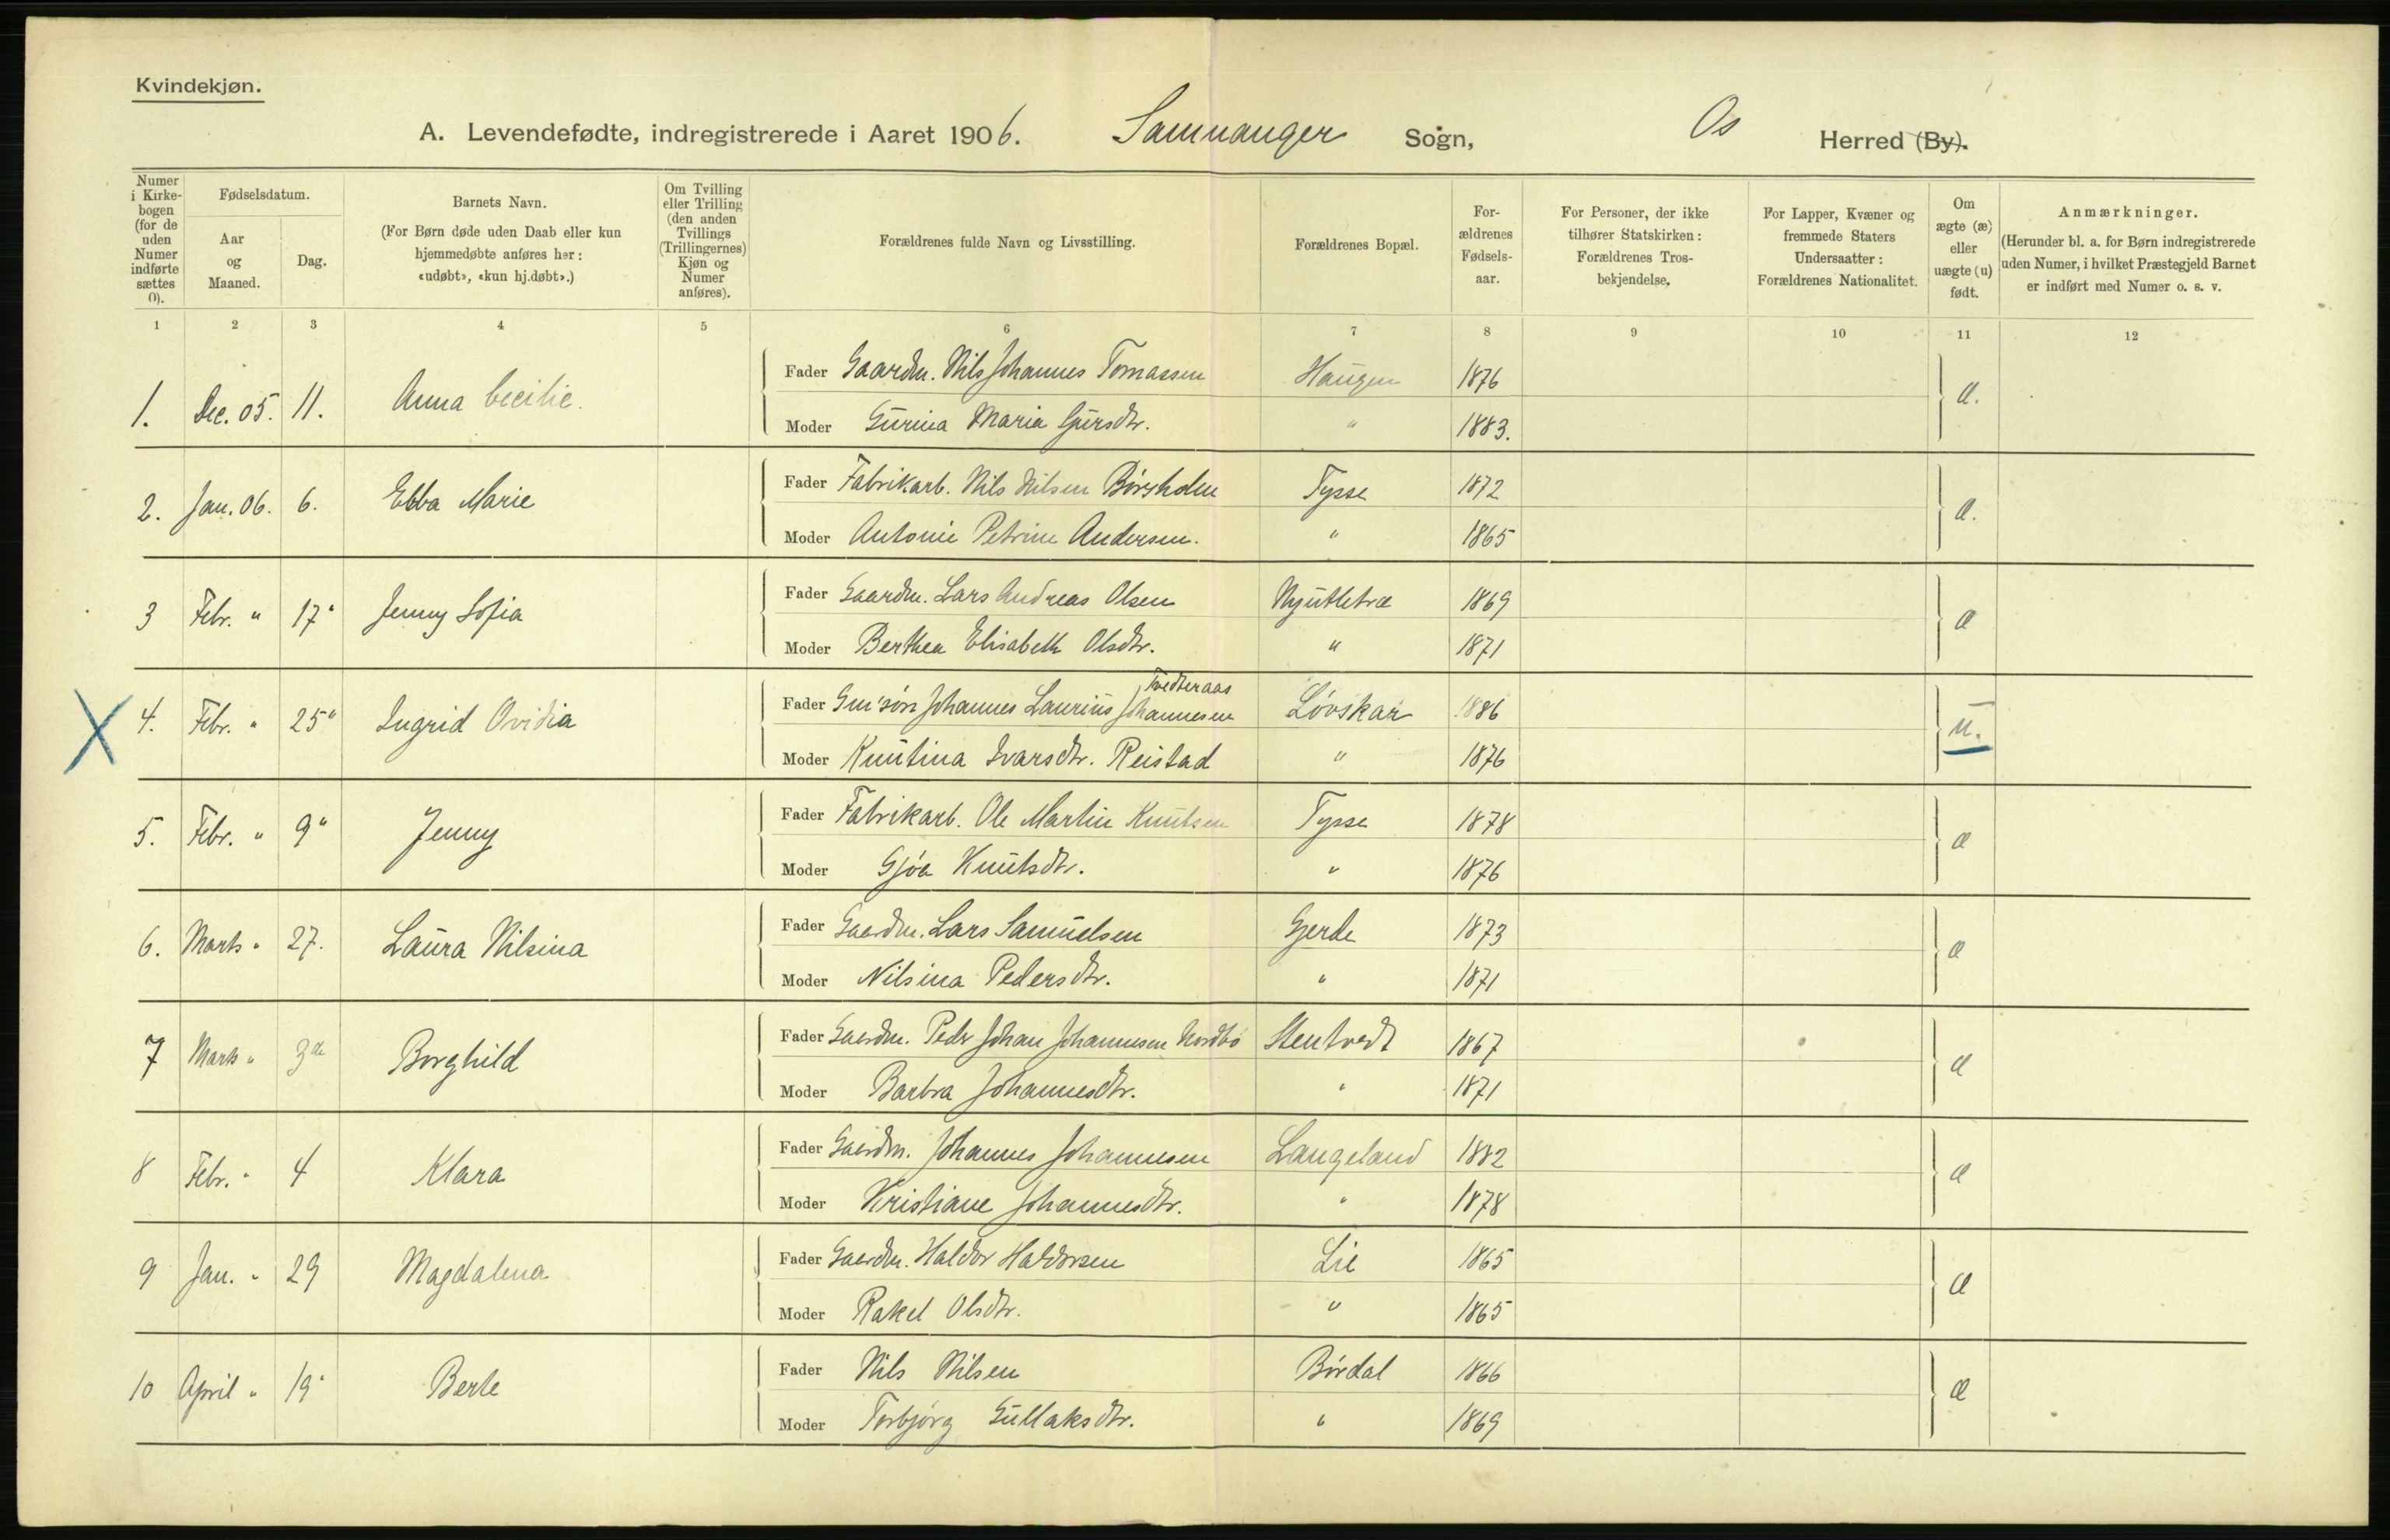 Kvindekjøn.
A. Levendefødte, indregistrerede i Aaret 1906. Samnanger Sogn, Os Herred (By).
Numer i Kirkebogen (for de uden Numer indførte sættes 0).
Fødselsdatum.
Aar og Maaned.
Dag.
Barnets Navn.
(For Børn døde uden Daab eller kun hjemmedøbte anføres her: «udøbt», «kun hj.døbt».)
Om Tvilling eller Trilling (den anden Tvillings (Trillingernes) Kjøn og Numer anføres).
Forældrenes fulde Navn og Livsstilling.
Forældrenes Bopæl.
Forældrenes Fødselsaar.
For Personer, der ikke tilhører Statskirken: Forældrenes Trosbekjendelse.
For Lapper, Kvæner og fremmede Staters Undersaatter: Forældrenes Nationalitet.
Om ægte (æ) eller uægte (u) født.
Anmærkninger.
(Herunder bl. a. for Børn indregistrerede uden Numer, i hvilket Præstegjeld Barnet er indført med Numer o. s. v.
1 2 3 4 5 6 7 8 9 10 11 12
1. Dec. 05. 11. Anna Cecilie. Fader Gaardm. Nils Johannes Tomassen Haugen 1876 æ.
Moder Gurina Maria Gjersdtr. " 1883.
2. Jan. 06. 6. Ebba Marie Fader Fabrikarb. Nils Nilsen Børsholm Tysse 1872 æ.
Moder Antonie Petrine Andersen. " 1865
3 Febr. " 17" Jenny Sofia Fader Gaardm. Lars Andreas Olsen 1869 æ
Moder Berthea Elisabeth Olsdtr. " 1871
Tvedteraas
4. Febr. " 25" Ingrid Ovidia Fader Gm'søn Johannes Laurius Johannesen Løvskar 1886 u.
Moder Knutina Ivarsdtr. Reistad " 1876
5. Febr. " 9" Jenny Fader Fabrikarb. Ole Martin Knutsen Tysse 1878 æ
Moder Gjøa Knutsdtr. " 1876
6. Marts " 27. Laura Nilsina Fader Gaardm. Lars Samuelsen Gjerde 1873 æ
Moder Nilsina Pedersdtr. " 1871
7 Marts " 3de Borghild Fader Gaardm. Peder Johan Johannesen Nordbø Stentvedt 1867 æ
Moder Barbra Johannesdtr. " 1871
8 Febr. " 4 Klara Fader Gaardm. Johannes Johannesen Langeland 1882 æ
Moder Kristiane Johannesdtr. " 1878
9 Jan. " 29 Magdalena Fader Gaardm. Haldor Haldorsen Lie 1865 æ
Moder Rakel Olsdtr. " 1865
10 April " 19" Berte Fader Nils Nilsen Børdal 1866 æ
Moder Torbjørg Gullaksdtr. " 1869